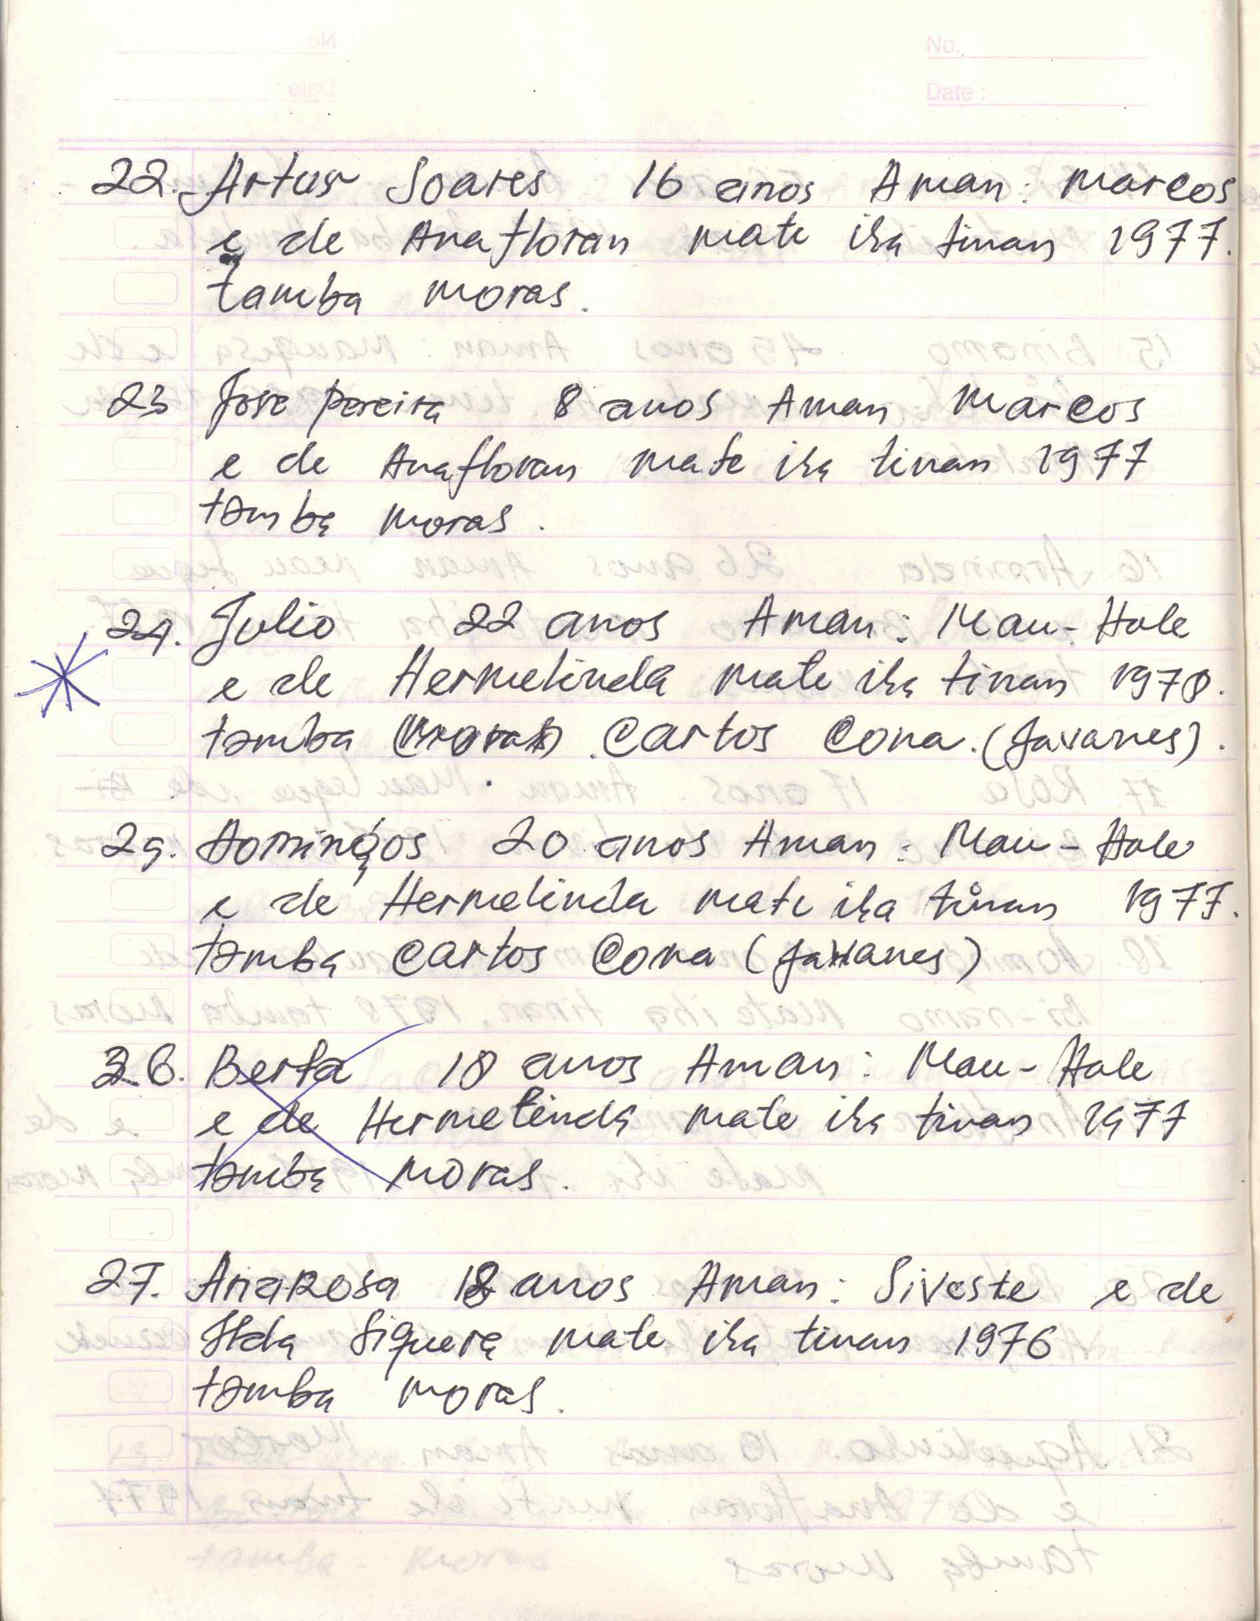 No.
Date :
22. Artur Soares 16 anos Aman : Marcos
e de Anafloran mate iha tinan 1977.
tamba moras.
23 Jose pereira 8 anos Aman Marcos
e de Anafloran mate iha tinan 1977
tamba moras.
24. Julio 22 anos Aman : Mau-Hale
e de Hermelinda mate iha tinan 1978.
tamba (moras) Cartos Cona. (Javanes).
25. Domingos 20 anos Aman : Mau-Hale
e de Hermelinda mate iha tinan 1977.
tamba Cartos Cona (Javanes)
26. Berta 18 anos Aman : Mau-Hale
e de Hermelinda mate iha tinan 1977
tamba moras.
27. AnaRosa 18 anos Aman : Siveste e de
Ilda Siquera mate iha tinan 1976
tamba moras.